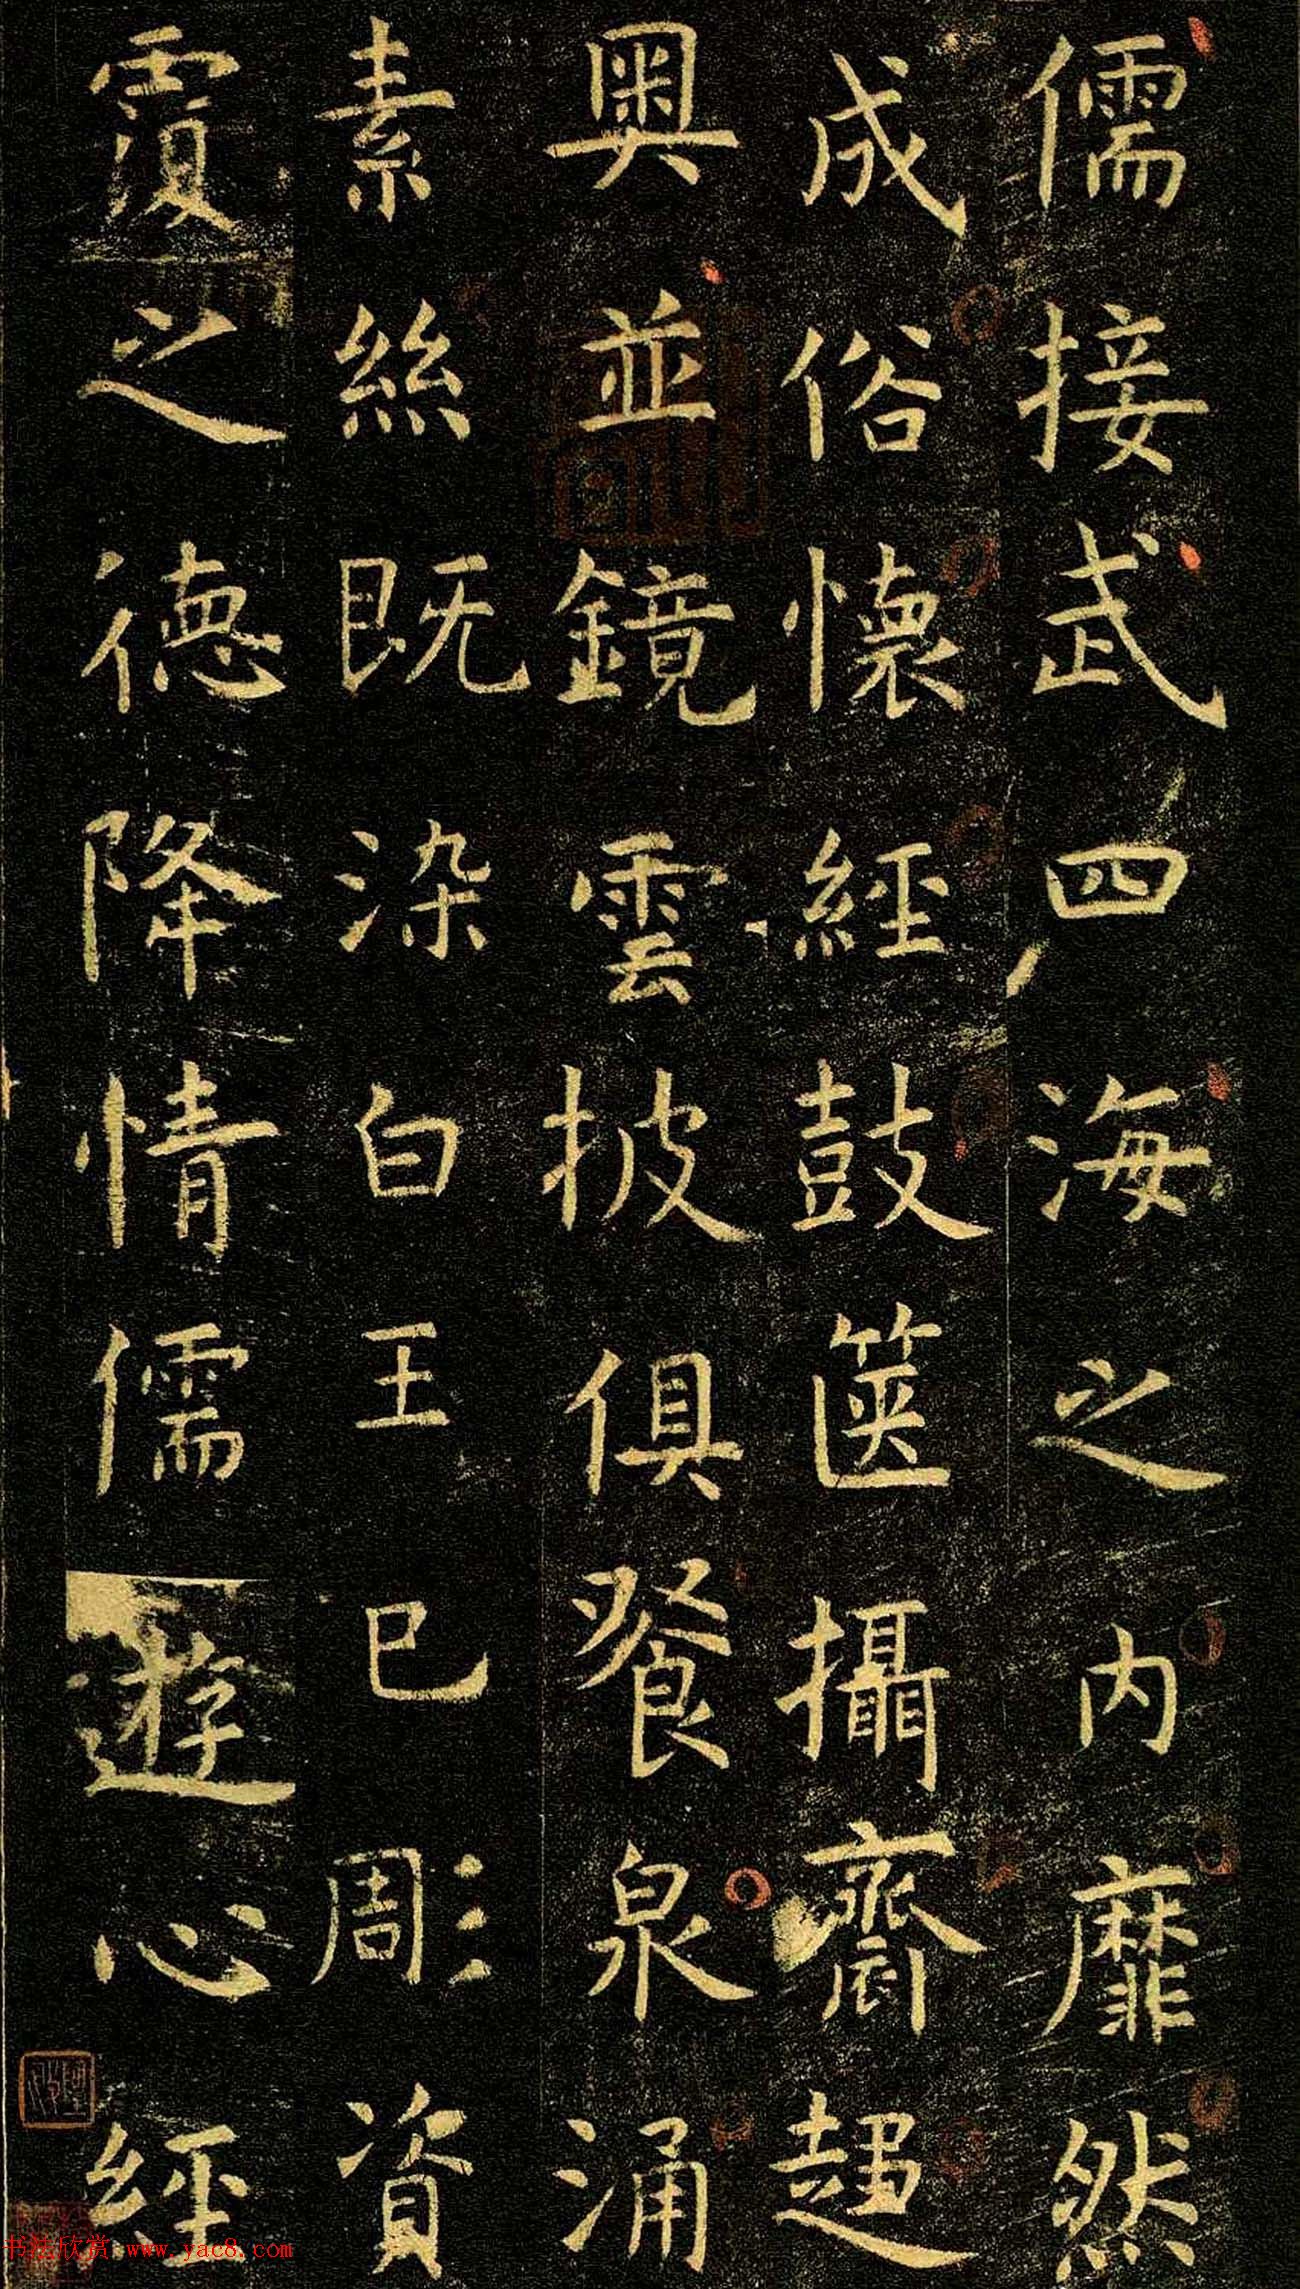 儒接武四海之内靡然
成俗懷經鼓篋攝齋趍
奥並鏡雲披俱餐泉涌
素絲既染白玉已彫資
覆之德降情儒遊心經
书法欣赏 www.yac8.com